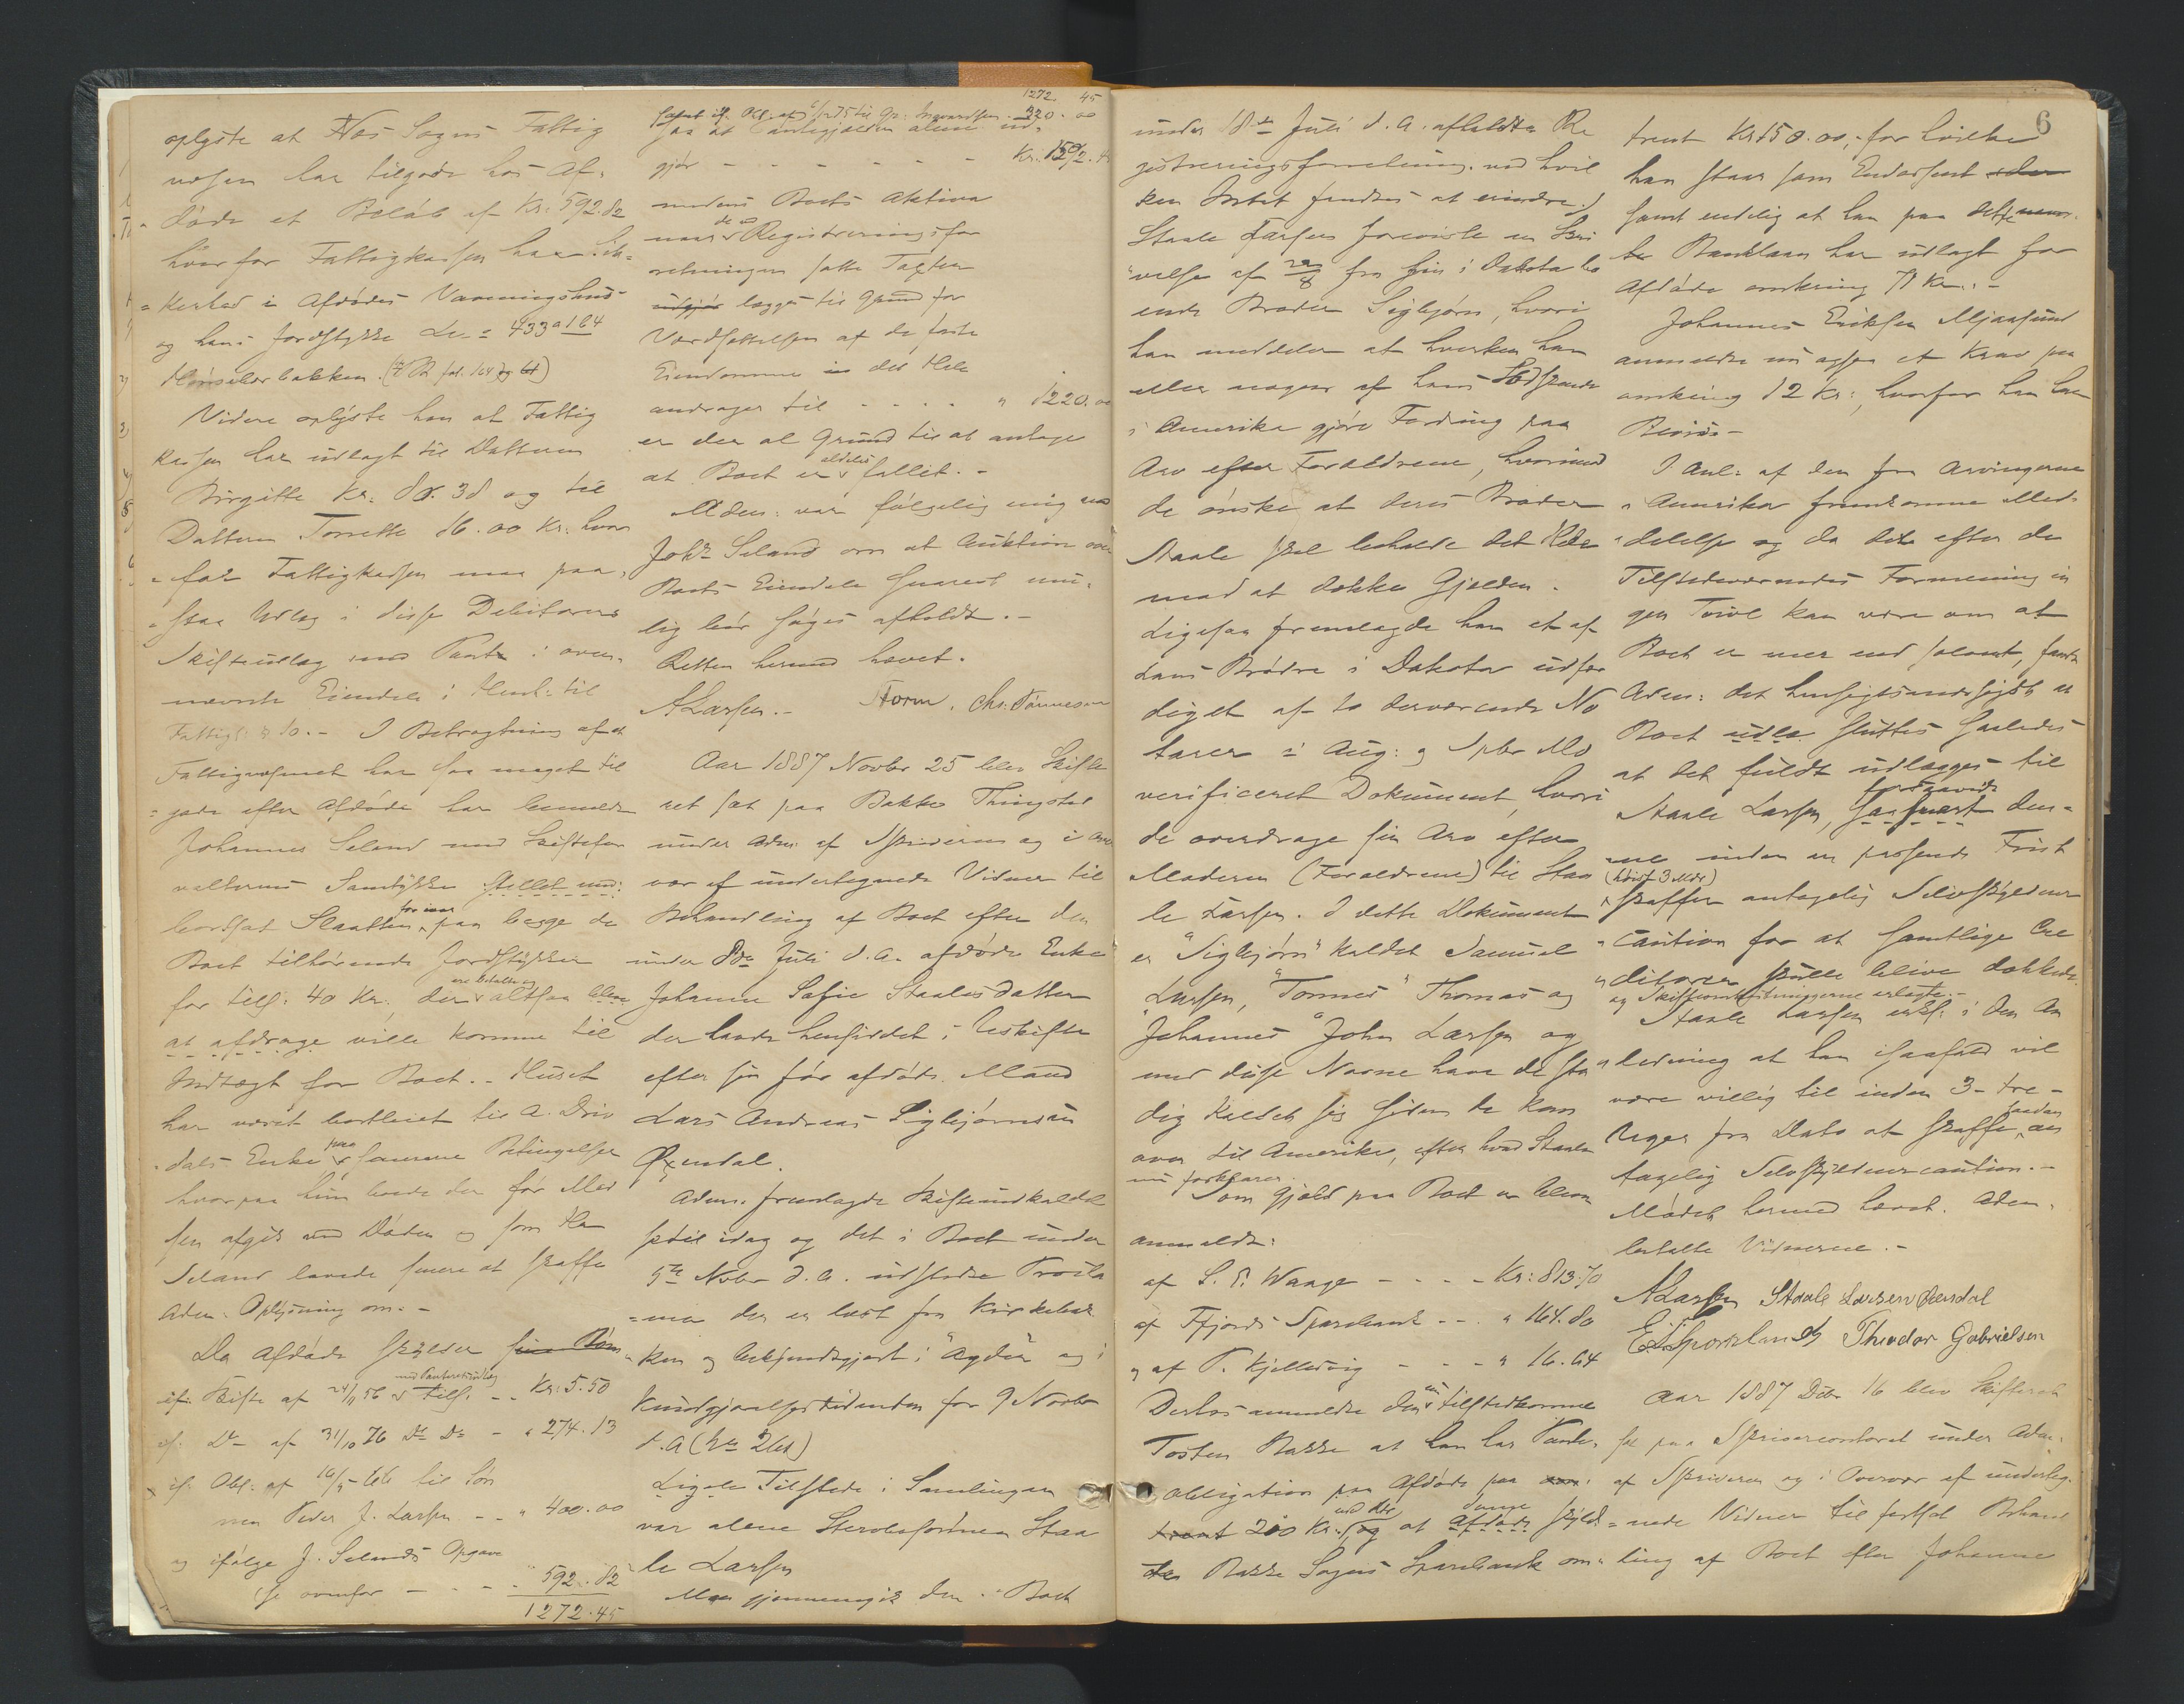 oplyste at Næs Sogns Fattig
væsen har tilgode hos Af-
døde et Beløb af Kr. 592.82
hvorfor Fattigkassen har Sik-
kerhed i Afdødes Vaaningshus
og hans Jordstykke 433 a 164
Videre oplyste han at Fattig
kassen har udlagt til Datteren
Birgitte Kr. 38 og til
Datteren Tonette 16.00 Kr. hvor
for Fattigkassen maa paa-
staa Udlæg i disse Debitorers
Skifteudlæg med Pant i oven-
nævnte Eiendele i Henh. til
Fattigl. § 10. - I Betragtning af at
Fattigvæsenet har saa meget til
gode efter Afdøde har
Johannes Seland med Skiftefor
valterens Samtykke stillet
bortsat Slaatten for iaar paa begge de
Boet tilhørende Jordstykker
for tils. 40 Kr., der ere betalte og altsaa
at afdrage ville komme til
Indtægt for Boet. - Huset
har været bortleiet til A. Dris
dals Enke paa samme Betingelser
hvorpaa hun boede der før Mad
sen afgik ved Døden og som Hr
Seland lovede senere at skaffe
Adm. Oplysning om. -
Da Afdøde skylder
if. Skifte af 24/11 56 med Panteretudlæg tils. - - Kr. 5.50
if. Do af 31/10 76 Do Do - " 274.13
if. Obl. af 16/5 66 til Søn
nen Peder J. Larsen - - " 400.00
og ifølge J. Selands Opgave
se ovenfor - - - " 592.82
1272.45
1272. 45
samt if. 220.00
saa at Pantegjælden alene ud-
gjør - - - - - - Kr. 1502.45
medens Boets Aktiva
naar de ved Registreringsfor
retningen satte Taxter
udgjør lægges til Grund for
Værdsættelsen af de faste
Eiendomme i det Hele
andrager til - - - - " 1220.00
er der al Grund til at antage
at Boet er aldeles fallit. -
Adm. var følgelig enig med
Johs Seland om at Auktion over
Boets Eiendele snarest mu-
lig bør søges afholdt. -
Retten hermed hævet.
ALarsen. - Storm. Chr. Tønnesen
Aar 1887 Novbr 25 blev Skifte
ret sat paa Bakke Thingsted
under Adm. af Skriveren og i Over
vær af undertegnede Vidner til
Behandling af Boet efter den
under 8de Juli d.A. afdøde Enke
Johanne Sofie Staalesdatter
der havde hensiddet i Uskifte
efter sin før afdøde Mand
Lars Andreas Sigbjørnsen
Øxendal.
Adm. fremlagde Skifteindkaldel
se til idag og det i Boet under
5te Novbr d.A. udstedte Procla
ma der er læst fra Kirkebak
ken og bekjendtgjort i "Agder" og i
Kundgjørelsestidenden for 9 Novbr
d.A (No 261)
Ligele Tilstede i Samlingen
var alene Stervbosønnen Staa
le Larsen
Man gjennemgik den i Boet
6
under 18de Juli d.A. afholdte Re
gistreringsforretning, ved hvil
ken Intet fandtes at erindre.
Staale Larsen foreviste en Skri
velse af fra sin i Dakota bo
ende Broder Sigbjørn, hvori
han meddeler at hverken han
eller nogen af hans Sødskende
i Amerika gjøre Fordring paa
Arv efter Forældrene, hvorimod
de ønske at deres Broder
Staale skal beholde det Hele
mod at dække Gjælden.
Ligesaa fremlagde han et af
hans Brødre i Dakota udfær
diget af to derværende No
tarer i Aug. og Spbr Md
verificeret Dokument, hvori
de overdrage sin Arv efter
Moderen (Forældrene) til Staa
le Larsen. I dette Dokument
er "Sigbjørn" kaldet Samuel
Larsen, "Tønnes" Thomas og
Johannes" John Larsen og
med disse Navne have de sta
dig kaldet sig siden de kom
over til Amerika, efter hvad Staale
nu forklarer.
Som Gjæld paa Boet er bleven
anmeldt:
af S. P. Waage - - - - Kr. 813.70
af Fjords Sparebank - - " 164.80
og af P. Kjellesvig - - - " 16.64
Derhos anmeldte den nu tilstedkomne
Tosten Bakke at han har Pante-
obligation paa Afdøde paa
200 Kr. og at Afdøde skyld-
te Bakke Sogns Sparebank om-
trent Kr 150.00, for hvilke
han staar som Endossent
samt endelig at han paa dette
Banklaan har udlagt for
Afdøde omkring 71 Kr. -
Johannes Eriksen Mjaasund
anmeldte nu ogsaa et Krav paa
omkring 12 Kr., hvorfor han har
Beviis -
I Anl. af den fra Arvingerne
i Amerika fremkomne Med-
delelse og da det efter de
Tilstedeværendes Formening in
gen Tvivl kan være om at
Boet er mer end solvent, fandt
Adm. det hensigtsmæssigst at
Boet sluttes saaledes
at det fuldt udlægges til
Staale Larsen, forsaavidt den-
ne inden en passende Frist
(høist 3 Mdr)
skaffer antagelig Selvskyldner
caution for at samtlige Cre
ditorer skulle blive dækkede
og Skifteomkostningerne erlagte. -
Staale Larsen erkl. i den An
ledning at han isaafald vil
være villig til inden 3 - tre -
Uger fra Dato at skaffe saadan an
tagelig Selvskyldnercaution. -
Mødet hermed hævet. Adm.
betalte Vidnerne. -
ALarsen Staale Larsen Øxendal
E. Sporkland Theodor Gabrielsen
Aar 1887 Dcbr 16 blev Skifteret
sat paa Skrivercontoret under Adm.
af Skriveren og i Overvær af underteg-
nede Vidner til fortsat Behand
ling af Boet efter Johanne